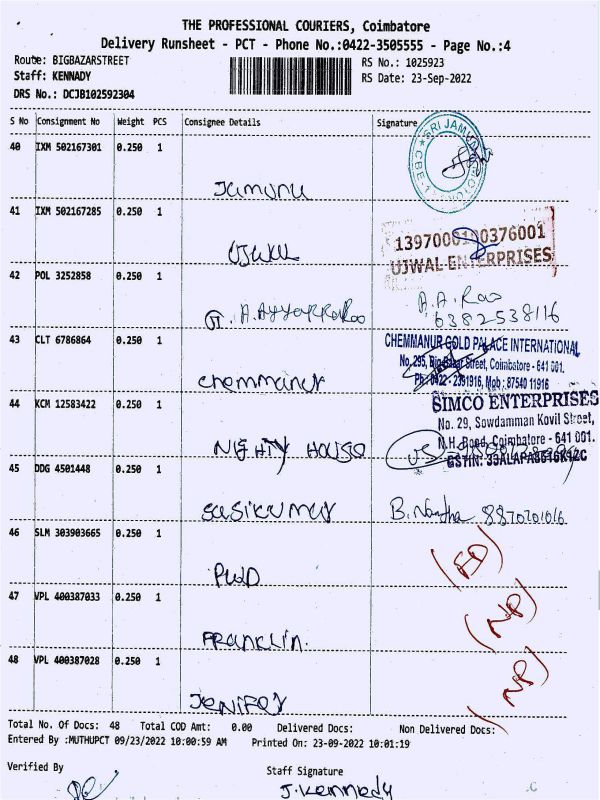 THE PROFESSIONAL COURIERS, Coimbatore
Delivery Runsheet - PCT - Phone No.:0422-3505555 - Page No.:4
Route: BIGBAZARSTREET
RS No.: 1025923
Staff: KENNADY
RS Date: 23-Sep-2022
DRS No.: DCJB102592304
S No Consignment No Weight PCS Consignee Details Signature
40 IXM 502167301 0.250 1
SRI JAMUNA
CBE-1
Jamunu
41 IXM 502167285 0.250 1
UJWAL ENTERPRISES
42 POL 3252858 0.250 1
A.A. Rao
6382538116
43 CLT 6786864 0.250 1
CHEMMANUR GOLD PALACE INTERNATIONAL
No. 295, Big Bazar Street, Coimbatore - 641 001.
Ph : 0422 - 2391916, Mob : 87540 11916
chemmanur
44 KCM 12583422 0.250 1
SIMCO ENTERPRISES
No. 29, Sowdamman Kovil Street,
N.H. Road, Coimbatore - 641 001.
NIGHTY HOUSE
VS
45 DDG 4501448 0.250 1
Sasikumar
B. Nantha 8870201016
46 SLM 303903665 0.250 1
PWD
47 VPL 400387033 0.250 1
(NP)
FRANKLIN.
48 VPL 400387028 0.250 1
(NP)
Jenifer
Total No. Of Docs: 48 Total COD Amt: 0.00 Delivered Docs: Non Delivered Docs:
Entered By :MUTHUPCT 09/23/2022 10:00:59 AM Printed On: 23-09-2022 10:01:19
Verified By
Staff Signature
J. Kennedy